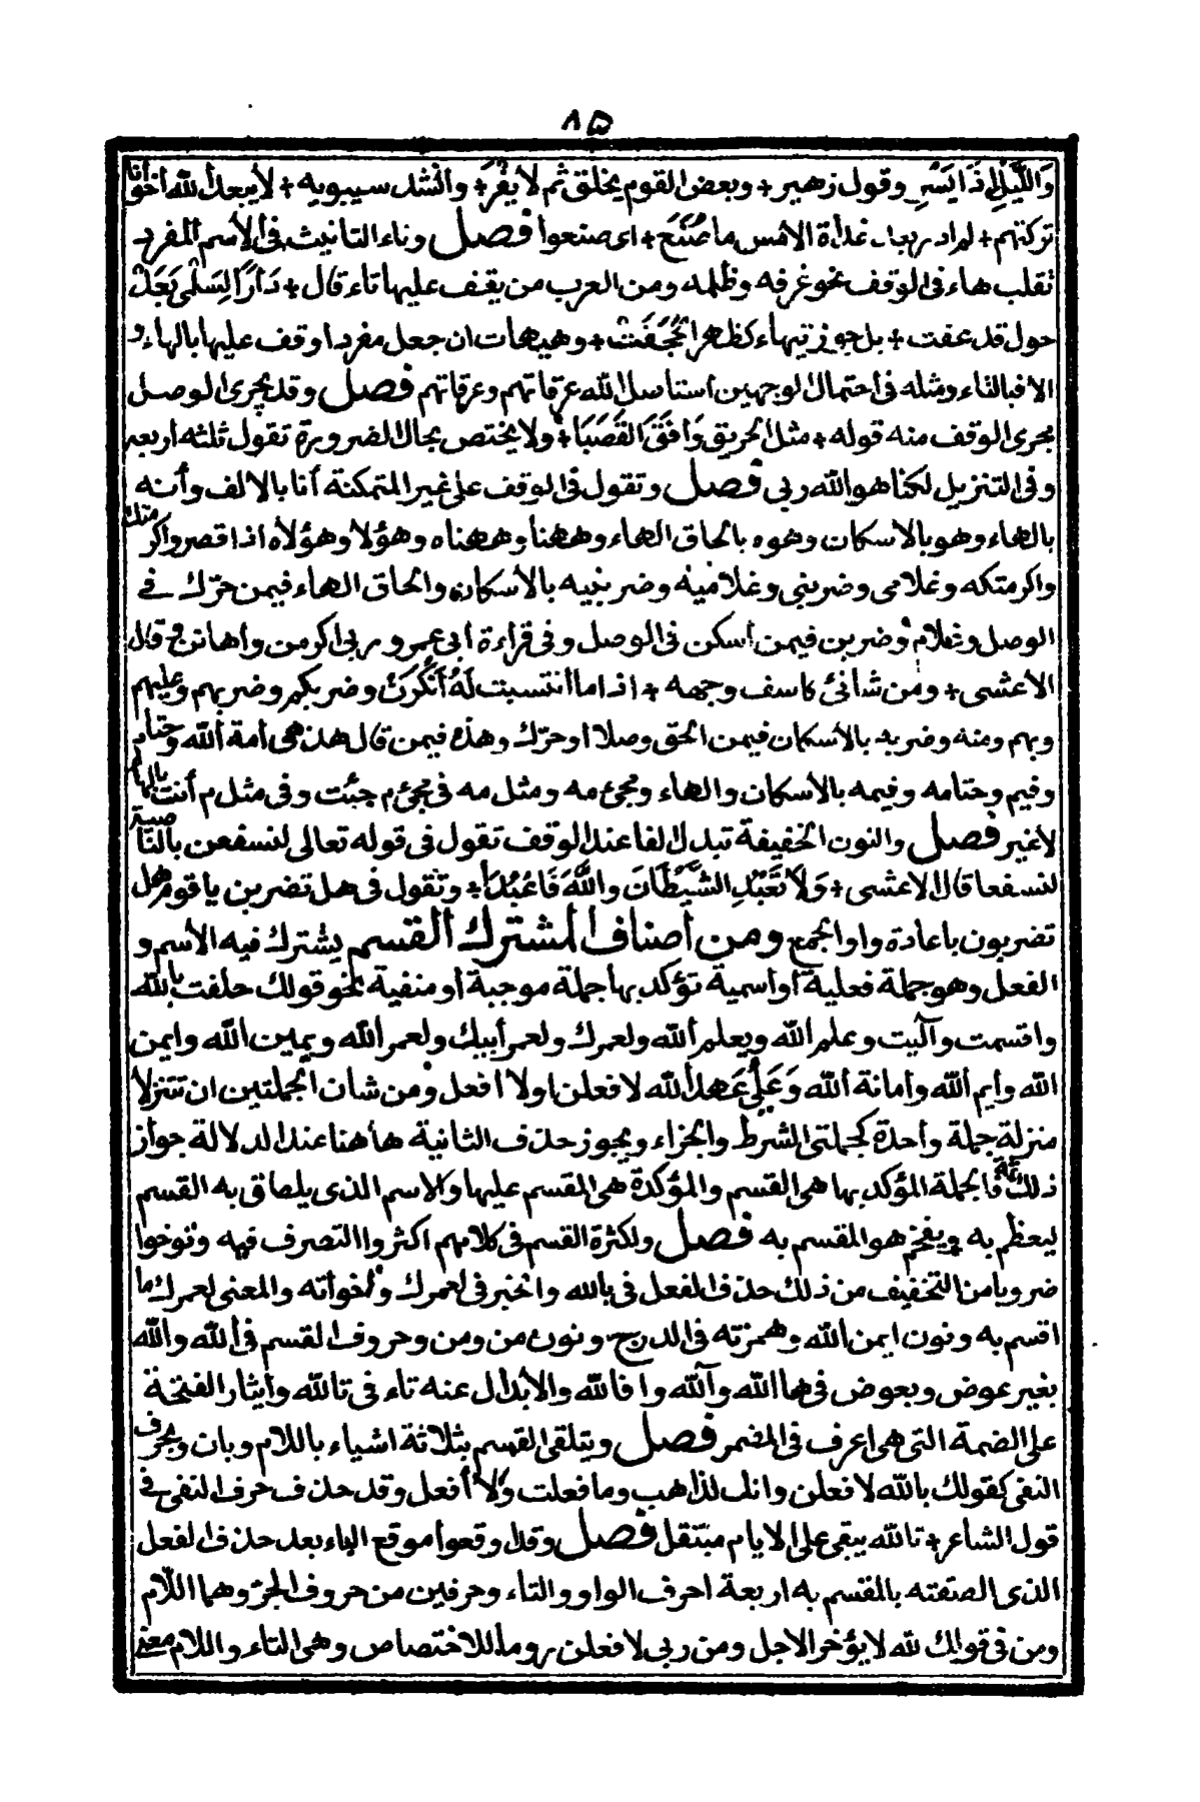 ٨٥
وَاللَّيْلِ إِذَا يَسْرِ وقول زهير + وبعض القوم يخلق ثم لا يَفْرْ + وانشد سيبويه + لا يبعد الله اخوانا
تركتهم + لم ادر بعد غداة الامس ما صَنَعْ + اى صنعوا فصل وتاء التانيث فى الاسم المفرد
تقلب هاء فى الوقف نحو غرفه وظلمه ومن العرب من يقف عليها تاء قال + دَارٌ لِسَلْمٰى بَعْدَ
حول قد عفت + بل جوز تيهاء كظهر الحَجَفَتْ + وهيهات ان جعل مفردا وقف عليها بالهاء و
الا فبالتاء ومثله فى احتمال الوجهين استاصل الله عرقاتهم وعرقاتهم فصل وقد يجرى الوصل
مجرى الوقف منه قوله + مثل الحريق وَافَقَ القَصَبَّا + ولا يختص بحال الضرورة تقول ثلثه اربعه
وفى التنزيل لكنا هو الله ربى فصل وتقول فى الوقف على غير المتمكنة أنا بالالف وأنه
بالهاء وهو بالاسكان وهوه بالحاق الهاء وههنا وههناه وهؤلا وهؤلاه اذا قصر واكرمتك
واكرمتكه وغلامى وضربنى وغلاميه وضربنيه بالأسكان والحاق الهاء فيمن حرّك فى
الوصل وغلام وضربن فيمن أسكن فى الوصل وفى قراءة أبى عمرو ربى اكرمن وأهانن وقال
الأعشى + ومن شانئ كاسف وجهه + اذا ما انتسبت لَهُ أَنْكَرَنْ وضربكم وضربهم وعليهم
وبهم ومنه وضربه بالأسكان فيمن الحق وصلا او حرّك وهذه فيمن قال هذهى أمة الله وحتام
وفيم وحتامه وفيمه بالأسكان والهاء ومجئ مه ومثل مه فى مجئ م جئت وفى مثل م أنت بالهاء
لا غير فصل والنون الخفيفة تبدل الفا عند الوقف تقول فى قوله تعالى لنسفعن بالناصية
لنسفعا قال الاعشى + وَلَا تَعْبُدِ الشَّيْطَانَ واللهَ فَاعْبُدَا + وتقول فى هل تضربن يا قوم هل
تضربون باعادة واو الجمع ومن أصناف المشترك القسم يشترك فيه الأسم و
الفعل وهو جملة فعلية أو اسمية تؤكد بها جملة موجبة أو منفية نحو قولك حلفت بالله
واقسمت وآليت وعلم الله ويعلم الله ولعمرك ولعمر أبيك ولعمر الله ويمين الله وايمن
الله وأيم الله وأمانة الله وَعَلَىَّ عَهد الله لا فعلن او لا افعل ومن شان الجملتين ان تتنزلا
منزلة جملة واحدة كجملتى الشرط والجزاء ويجوز حذف الثانية هاهنا عند الدلالة جواز
ذلك ثمة فالجملة المؤكد بها هى القسم والمؤكدة هى المقسم عليها والاسم الذى يلصق به القسم
ليعظم به ويفخم هو المقسم به فصل ولكثرة القسم فى كلامهم اكثروا التصرف فيه وتوخوا
ضروبا من التخفيف من ذلك حذف الفعل فى بالله والخبر فى لعمرك وأخواته والمعنى لعمرك ما
اقسم به ونون ايمن الله وهمزته فى الدرج ونون من ومن وحروف القسم فى الله والله
بغير عوض وبعوض فى ها الله وآلله وافالله والأبدال عنه تاء فى تالله وايثار الفتحة
على الضمة التى هى اعرف فى المضمر فصل ويتلقى القسم بثلاثة اشياء باللام وبان وبحرف
النفى كقولك بالله لا فعلن وانك لذاهب وما فعلت ولا أفعل وقد حذف حرف النفى فى
قول الشاعر + تالله يبقى على الايام مبتقل فصل وقد اوقعوا موقع الباء بعد حذف الفعل
الذى الصقته بالمقسم به اربعة احرف الواو والتاء وحرفين من حروف الجرّ وهما اللام
ومن فى قولك لله لا يؤخر الاجل ومن ربى لا فعلن روما للاختصاص وهى التاء واللام معنى